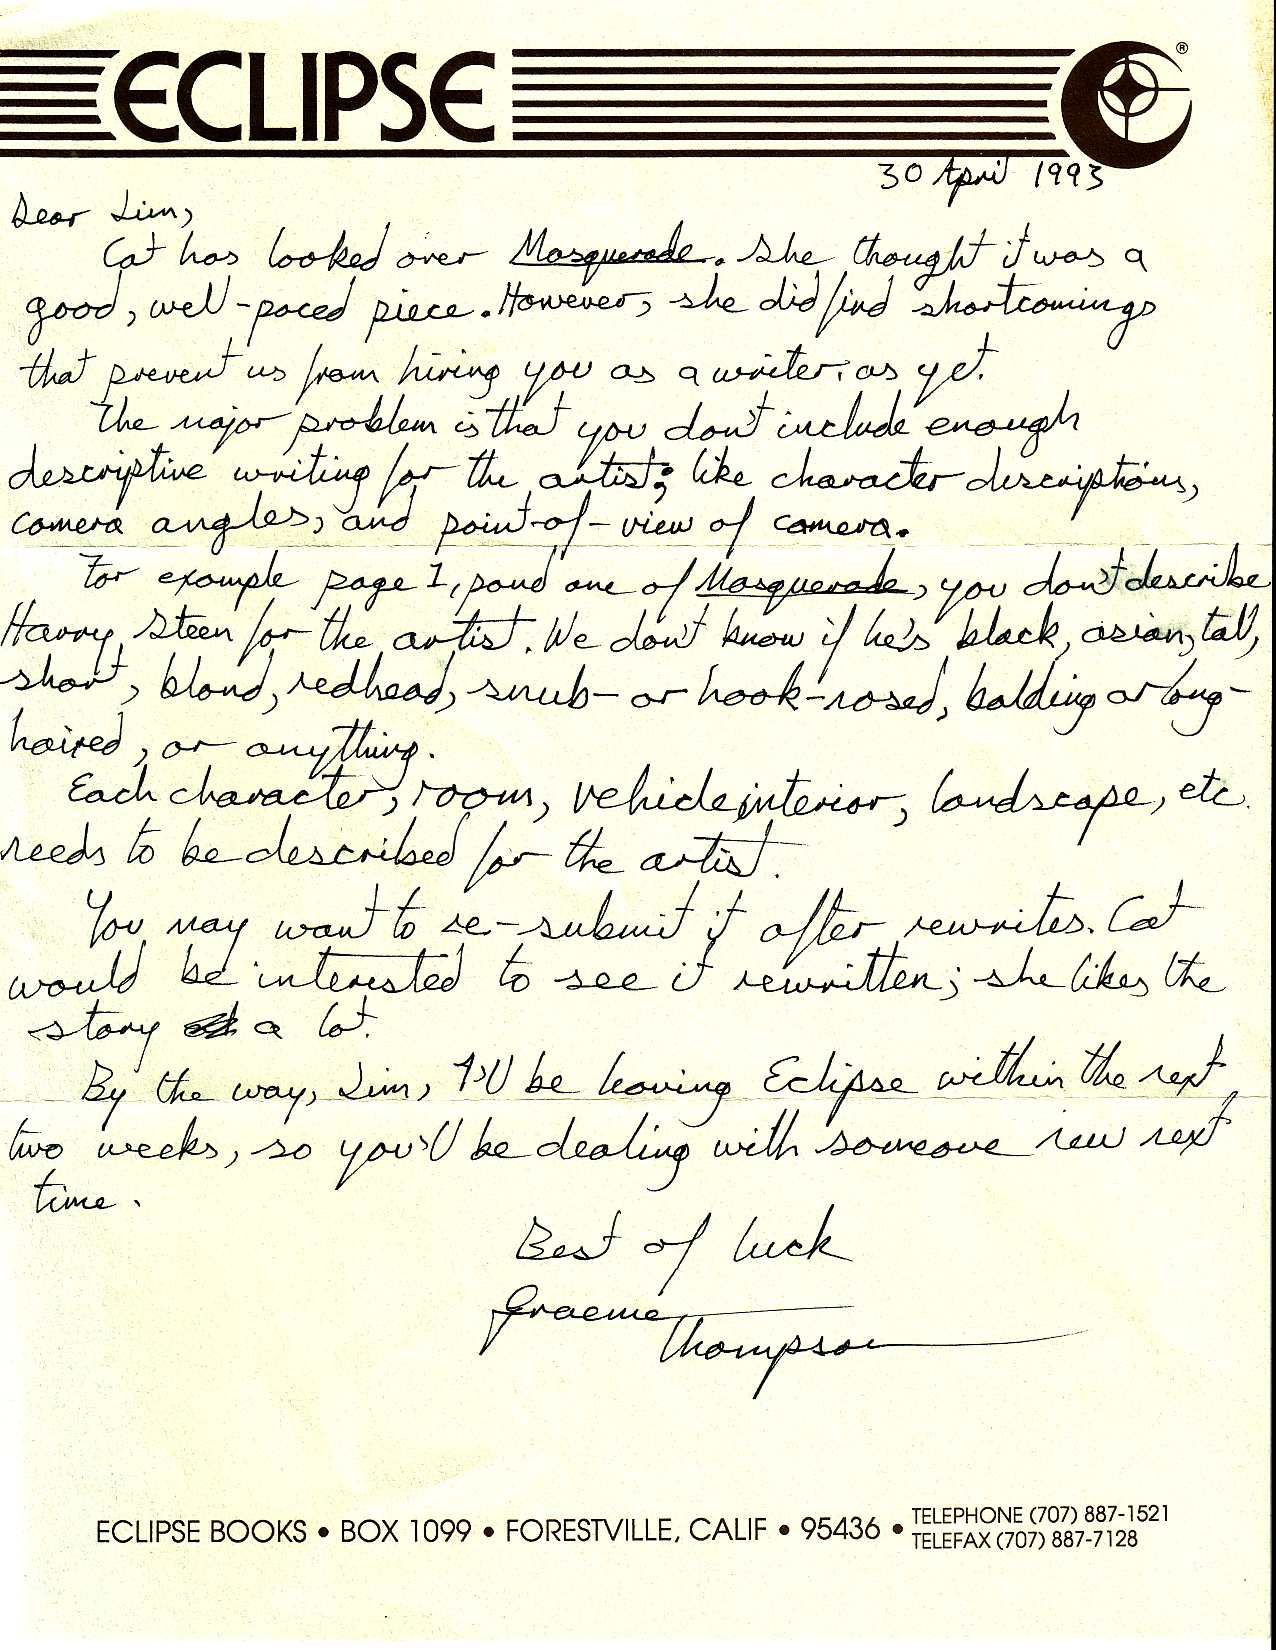 ECLIPSE ®
30 April 1993
Dear Jim,
Cat has looked over Masquerade. She thought it was a
good, well-paced piece. However, she did find shortcomings
that prevent us from hiring you as a writer as yet.
The major problem is that you don't include enough
descriptive writing for the artist; like character descriptions,
camera angles, and point-of-view of camera.
For example page 1, panel one of Masquerade, you don't describe
Harry Steen for the artist. We don't know if he's black, asian, tall,
short, blond, redhead, snub- or hook-nosed, balding or long-
haired, or anything.
Each character, room, vehicle interior, landscape, etc.
needs to be described for the artist.
You may want to re-submit it after rewrites. Cat
would be interested to see it rewritten; she likes the
story a lot.
By the way, Jim, I'll be leaving Eclipse within the next
two weeks, so you'll be dealing with someone new next
time.
Best of luck
Graeme
Thompson
ECLIPSE BOOKS • BOX 1099 • FORESTVILLE, CALIF • 95436 • TELEPHONE (707) 887-1521
TELEFAX (707) 887-7128